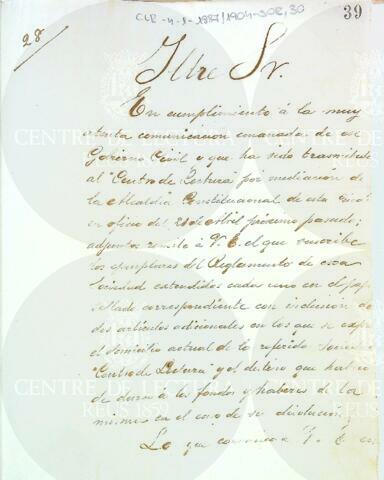 CLR-4-1-1887/1904-308,30
39
28
Iltre Sr.
En cumplimiento á la muy
atenta comunicacion emanada de ese
Gobierno Civil o que ha sido trasmitida
al "Centro de Lectura" por mediacion de
la Alcaldia Constitucional de esta
en oficio del 21 de Abril próximo pasado;
adjuntos remite á V. E. el que suscribe
los ejemplares del Reglamento de esta
Sociedad extendidos cada uno en el pap
sellado correspondiente con inclusion de
dos articulos adicionales en los que se
el domicilio actual de la referida
"Centro de Lectura" y el destino que
de darse á los fondos y haberes de la
misma en el caso de su disolucion.
Lo que comunico a V. E.
CENTRE DE LECTURA
REUS 1859